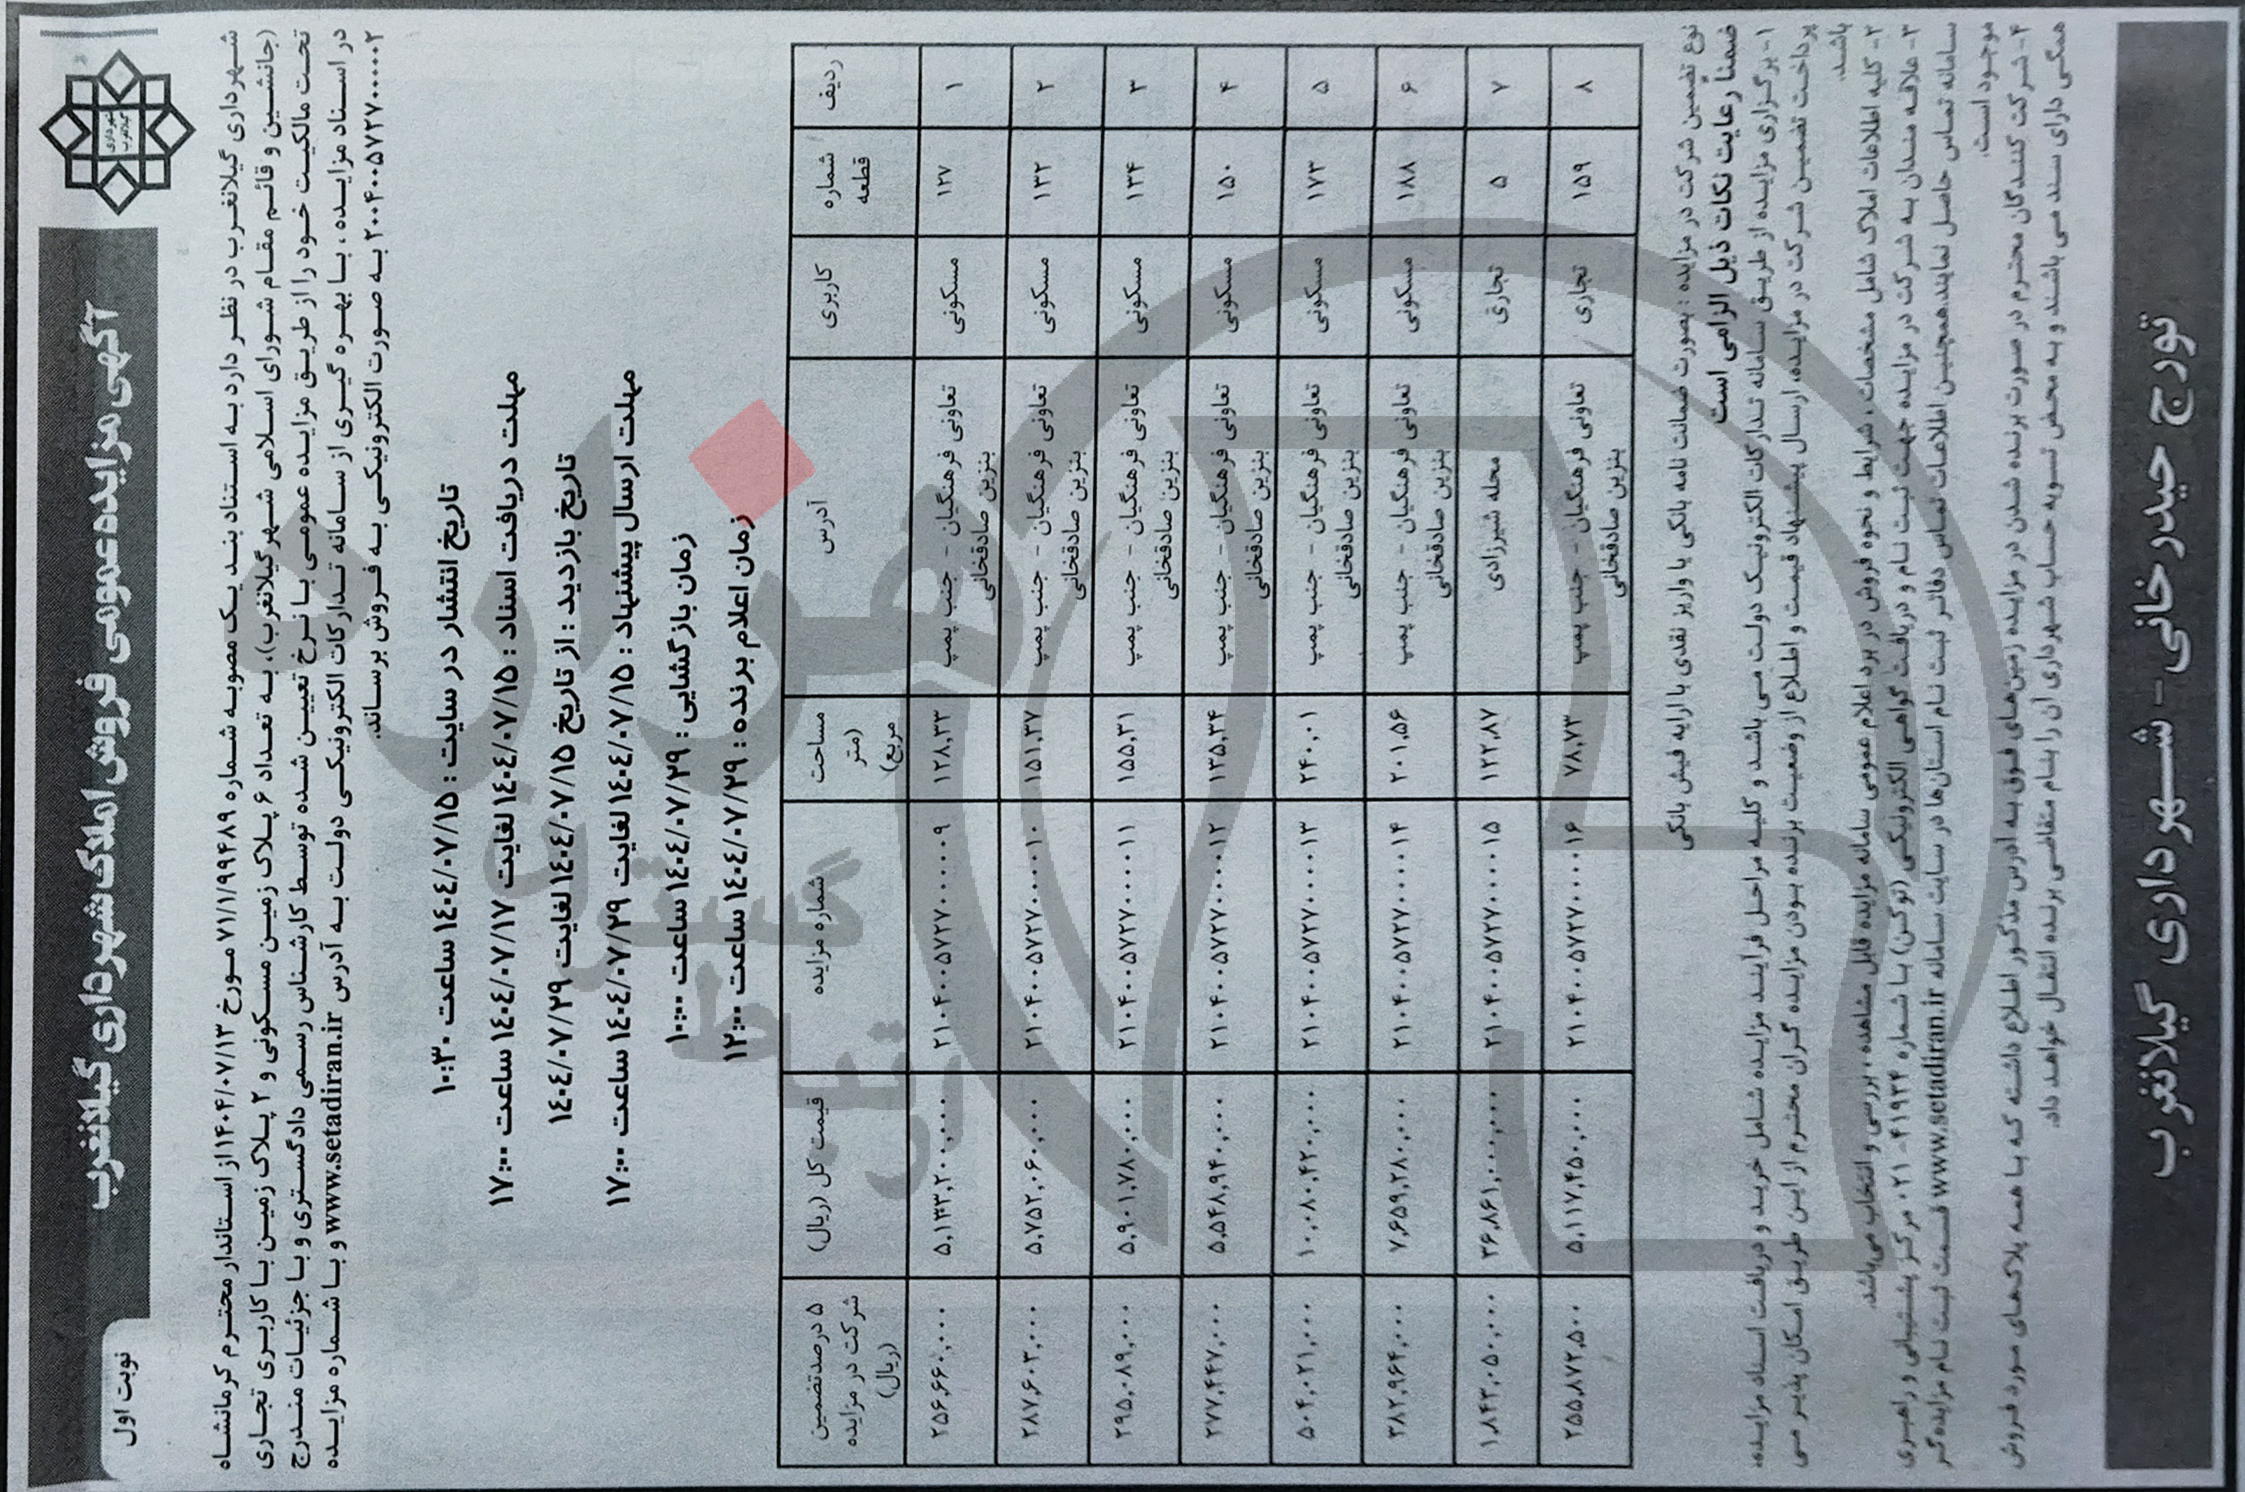 آگهی مزایده عمومی فروش املاک شهرداری گیلانغرب
نوبت اول
شهرداری گیلانغرب
شهرداری گیلانغرب در نظر دارد به استناد بند یک مصوبه شماره ۷۱/۱/۹۹۴۸۹ مورخ ۱۴۰۴/۰۷/۱۳ از استاندار محترم کرمانشاه
(جانشین و قائم مقام شورای اسلامی شهر گیلانغرب)، به تعداد ۶ پلاک زمین مسکونی و ۲ پلاک زمین با کاربری تجاری
تحت مالکیت خود را از طریق مزایده عمومی با نرخ تعیین شده توسط کارشناس رسمی دادگستری و با جزئیات مندرج
در اسناد مزایده، با بهره گیری از سامانه تدارکات الکترونیکی دولت به آدرس www.setadiran.ir و با شماره مزایده
۲۰۰۴۰۰۵۷۲۷۰۰۰۰۰۲ به صورت الکترونیکی به فروش برساند.
تاریخ انتشار در سایت : ۱٤۰٤/۰۷/۱۵ ساعت ۱۰:۳۰
مهلت دریافت اسناد : ۱٤۰٤/۰۷/۱۵ لغایت ۱٤۰٤/۰۷/۱۷ ساعت ۱۷:۰۰
تاریخ بازدید : از تاریخ ۱٤۰٤/۰۷/۱۵ لغایت ۱٤۰٤/۰۷/۲۹
مهلت ارسال پیشنهاد : ۱٤۰٤/۰۷/۱۵ لغایت ۱٤۰٤/۰۷/۲۹ ساعت ۱۷:۰۰
زمان بازگشایی : ۱٤۰٤/۰۷/۲۹ ساعت ۱۰:۰۰
زمان اعلام برنده : ۱٤۰٤/۰۷/۲۹ ساعت ۱۲:۰۰
ردیف شماره قطعه کاربری آدرس مساحت (متر مربع) شماره مزایده قیمت کل (ریال) ۵ درصد تضمین شرکت در مزایده (ریال)
۱ ۱۲۷ مسکونی تعاونی فرهنگیان - جنب پمپ بنزین صادقخانی ۱۲۸,۳۳ ۲۱۰۴۰۰۵۷۲۷۰۰۰۰۰۹ ۵,۱۳۳,۲۰۰,۰۰۰ ۲۵۶,۶۶۰,۰۰۰
۲ ۱۳۲ مسکونی تعاونی فرهنگیان - جنب پمپ بنزین صادقخانی ۱۵۱,۳۷ ۲۱۰۴۰۰۵۷۲۷۰۰۰۰۱۰ ۵,۷۵۲,۰۶۰,۰۰۰ ۲۸۷,۶۰۳,۰۰۰
۳ ۱۳۴ مسکونی تعاونی فرهنگیان - جنب پمپ بنزین صادقخانی ۱۵۵,۳۱ ۲۱۰۴۰۰۵۷۲۷۰۰۰۰۱۱ ۵,۹۰۱,۷۸۰,۰۰۰ ۲۹۵,۰۸۹,۰۰۰
۴ ۱۵۰ مسکونی تعاونی فرهنگیان - جنب پمپ بنزین صادقخانی ۱۳۵,۳۴ ۲۱۰۴۰۰۵۷۲۷۰۰۰۰۱۲ ۵,۵۴۸,۹۴۰,۰۰۰ ۲۷۷,۴۴۷,۰۰۰
۵ ۱۷۳ مسکونی تعاونی فرهنگیان - جنب پمپ بنزین صادقخانی ۲۴۰,۰۱ ۲۱۰۴۰۰۵۷۲۷۰۰۰۰۱۳ ۱۰,۰۸۰,۴۲۰,۰۰۰ ۵۰۴,۰۲۱,۰۰۰
۶ ۱۸۸ مسکونی تعاونی فرهنگیان - جنب پمپ بنزین صادقخانی ۲۰۱,۵۶ ۲۱۰۴۰۰۵۷۲۷۰۰۰۰۱۴ ۷,۶۵۹,۲۸۰,۰۰۰ ۳۸۲,۹۶۴,۰۰۰
۷ ۵ تجاری محله شیرزادی ۱۲۲,۸۷ ۲۱۰۴۰۰۵۷۲۷۰۰۰۰۱۵ ۳۶,۸۶۱,۰۰۰,۰۰۰ ۱,۸۴۳,۰۵۰,۰۰۰
۸ ۱۵۹ تجاری تعاونی فرهنگیان - جنب پمپ بنزین صادقخانی ۷۸,۷۳ ۲۱۰۴۰۰۵۷۲۷۰۰۰۰۱۶ ۵,۱۱۷,۴۵۰,۰۰۰ ۲۵۵,۸۷۲,۵۰۰
نوع تضمین شرکت در مزایده : بصورت ضمانت نامه بانکی یا واریز نقدی با ارایه فیش بانکی
ضمناً رعایت نکات ذیل الزامی است
۱- برگزاری مزایده از طریق سامانه تدارکات الکترونیک دولت می باشد و کلیه مراحل فرایند مزایده شامل خرید و دریافت اسناد مزایده،
پرداخت تضمین شرکت در مزایده، ارسال پیشنهاد قیمت و اطلاع از وضعیت برنده بودن مزایده گران محترم از این طریق امکان پذیر می
باشد.
۲- کلیه اطلاعات املاک شامل مشخصات، شرایط و نحوه فروش در برد اعلام عمومی سامانه مزایده قابل مشاهده، بررسی و انتخاب می‌باشد.
۳- علاقه مندان به شرکت در مزایده جهت ثبت نام و دریافت گواهی الکترونیکی (توکن) با شماره ۴۱۹۳۴-۰۲۱ مرکز پشتیبانی و راهبری
سامانه تماس حاصل نمایند.همچنین اطلاعات تماس دفاتر ثبت نام استان‌ها در سایت سامانه www.setadiran.ir قسمت ثبت نام مزایده‌گر
موجود است.
۴- شرکت کنندگان محترم در صورت برنده شدن در مزایده زمین‌های فوق به آدرس مذکور اطلاع داشته که با همه پلاک‌های مورد فروش
همگی دارای سند می باشند و به محض تسویه حساب شهرداری آن را بنام متقاضی برنده انتقال خواهد داد.
تورج حیدرخانی - شهرداری گیلانغرب